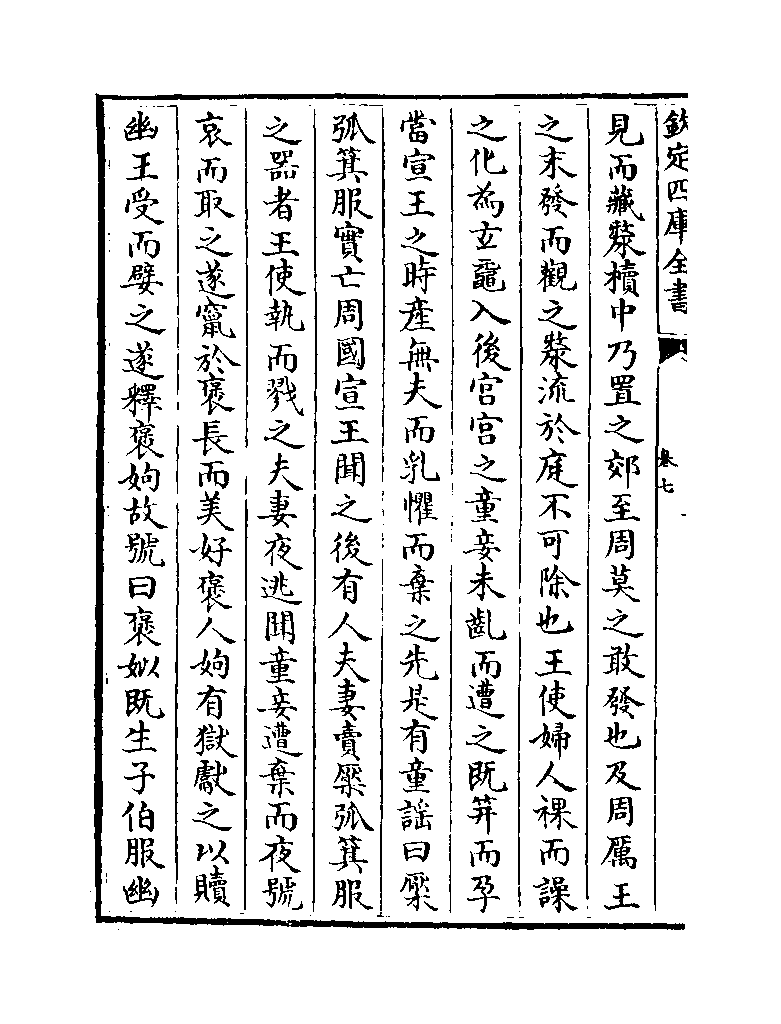 欽定四庫全書
卷七
見而藏漦櫝中乃置之郊至周莫之敢發也及周厲王
之末發而觀之漦流於庭不可除也王使婦人裸而譟
之化為玄黿入後宮宮之童妾未齓而遭之既笄而孕
當宣王之時產無夫而乳懼而棄之先是有童謡曰檿
弧箕服實亡周國宣王聞之後有人夫妻賣檿弧箕服
之器者王使執而戮之夫妻夜逃聞童妾遭棄而夜號
哀而取之遂竄於褒長而美好褒人姁有獄獻之以贖
幽王受而嬖之遂釋褒姁故號曰褒姒既生子伯服幽